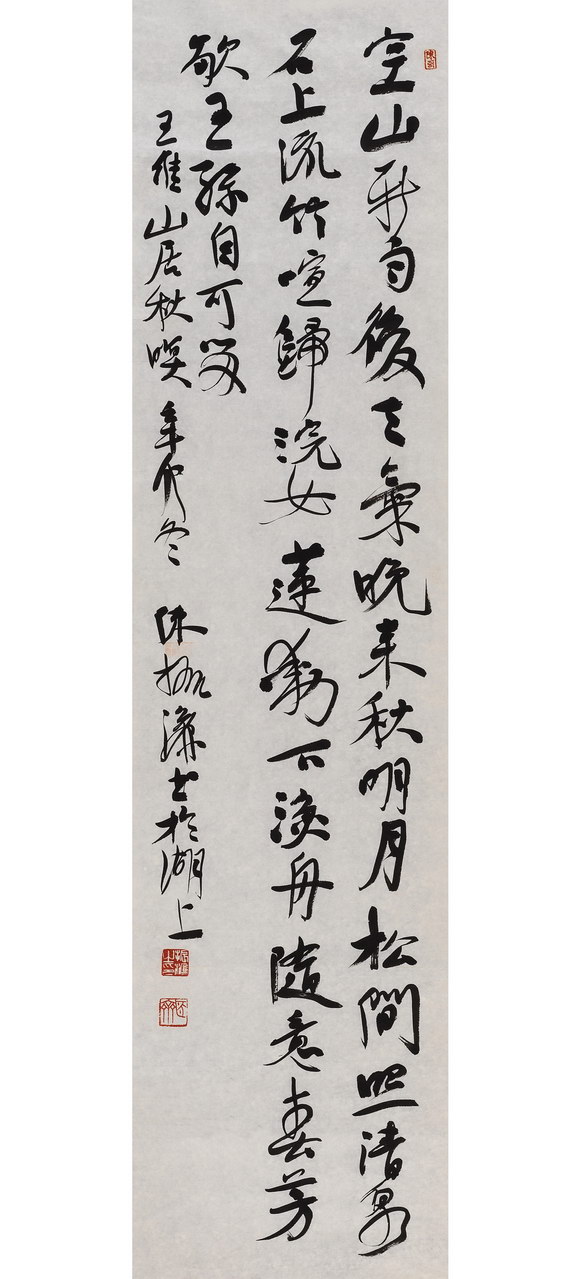 空山新雨後天氣晚来秋明月松間照清泉
石上流竹喧歸浣女蓮動下漁舟隨意春芳
歇王孫自可留
王維山居秋暝 辛卯冬 陈振濂书於湖上